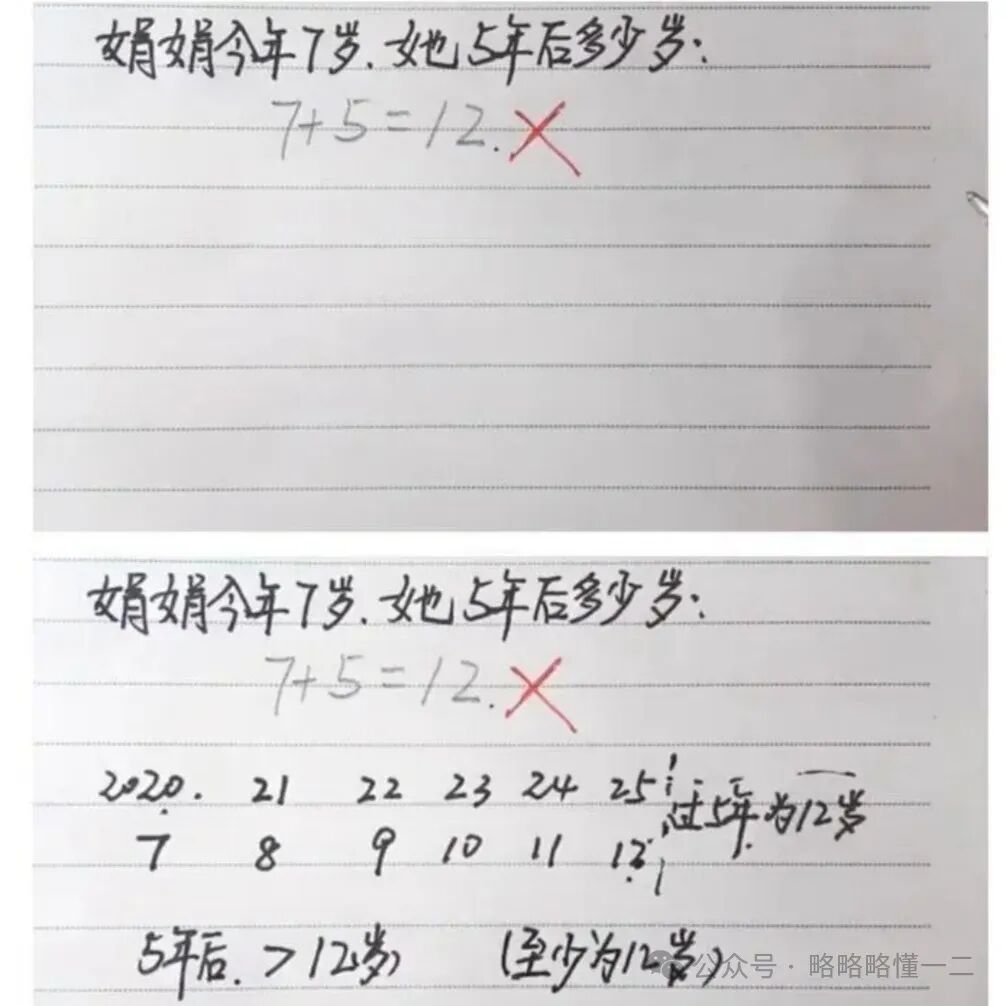 娟娟今年7岁.她5年后多少岁:
7+5=12.
娟娟今年7岁.她5年后多少岁:
7+5=12.
2020. 21 22 23 24 25 过5年为12岁
7 8 9 10 11 12
5年后. >12岁 (至少为12岁)
公众号·略略略懂一二